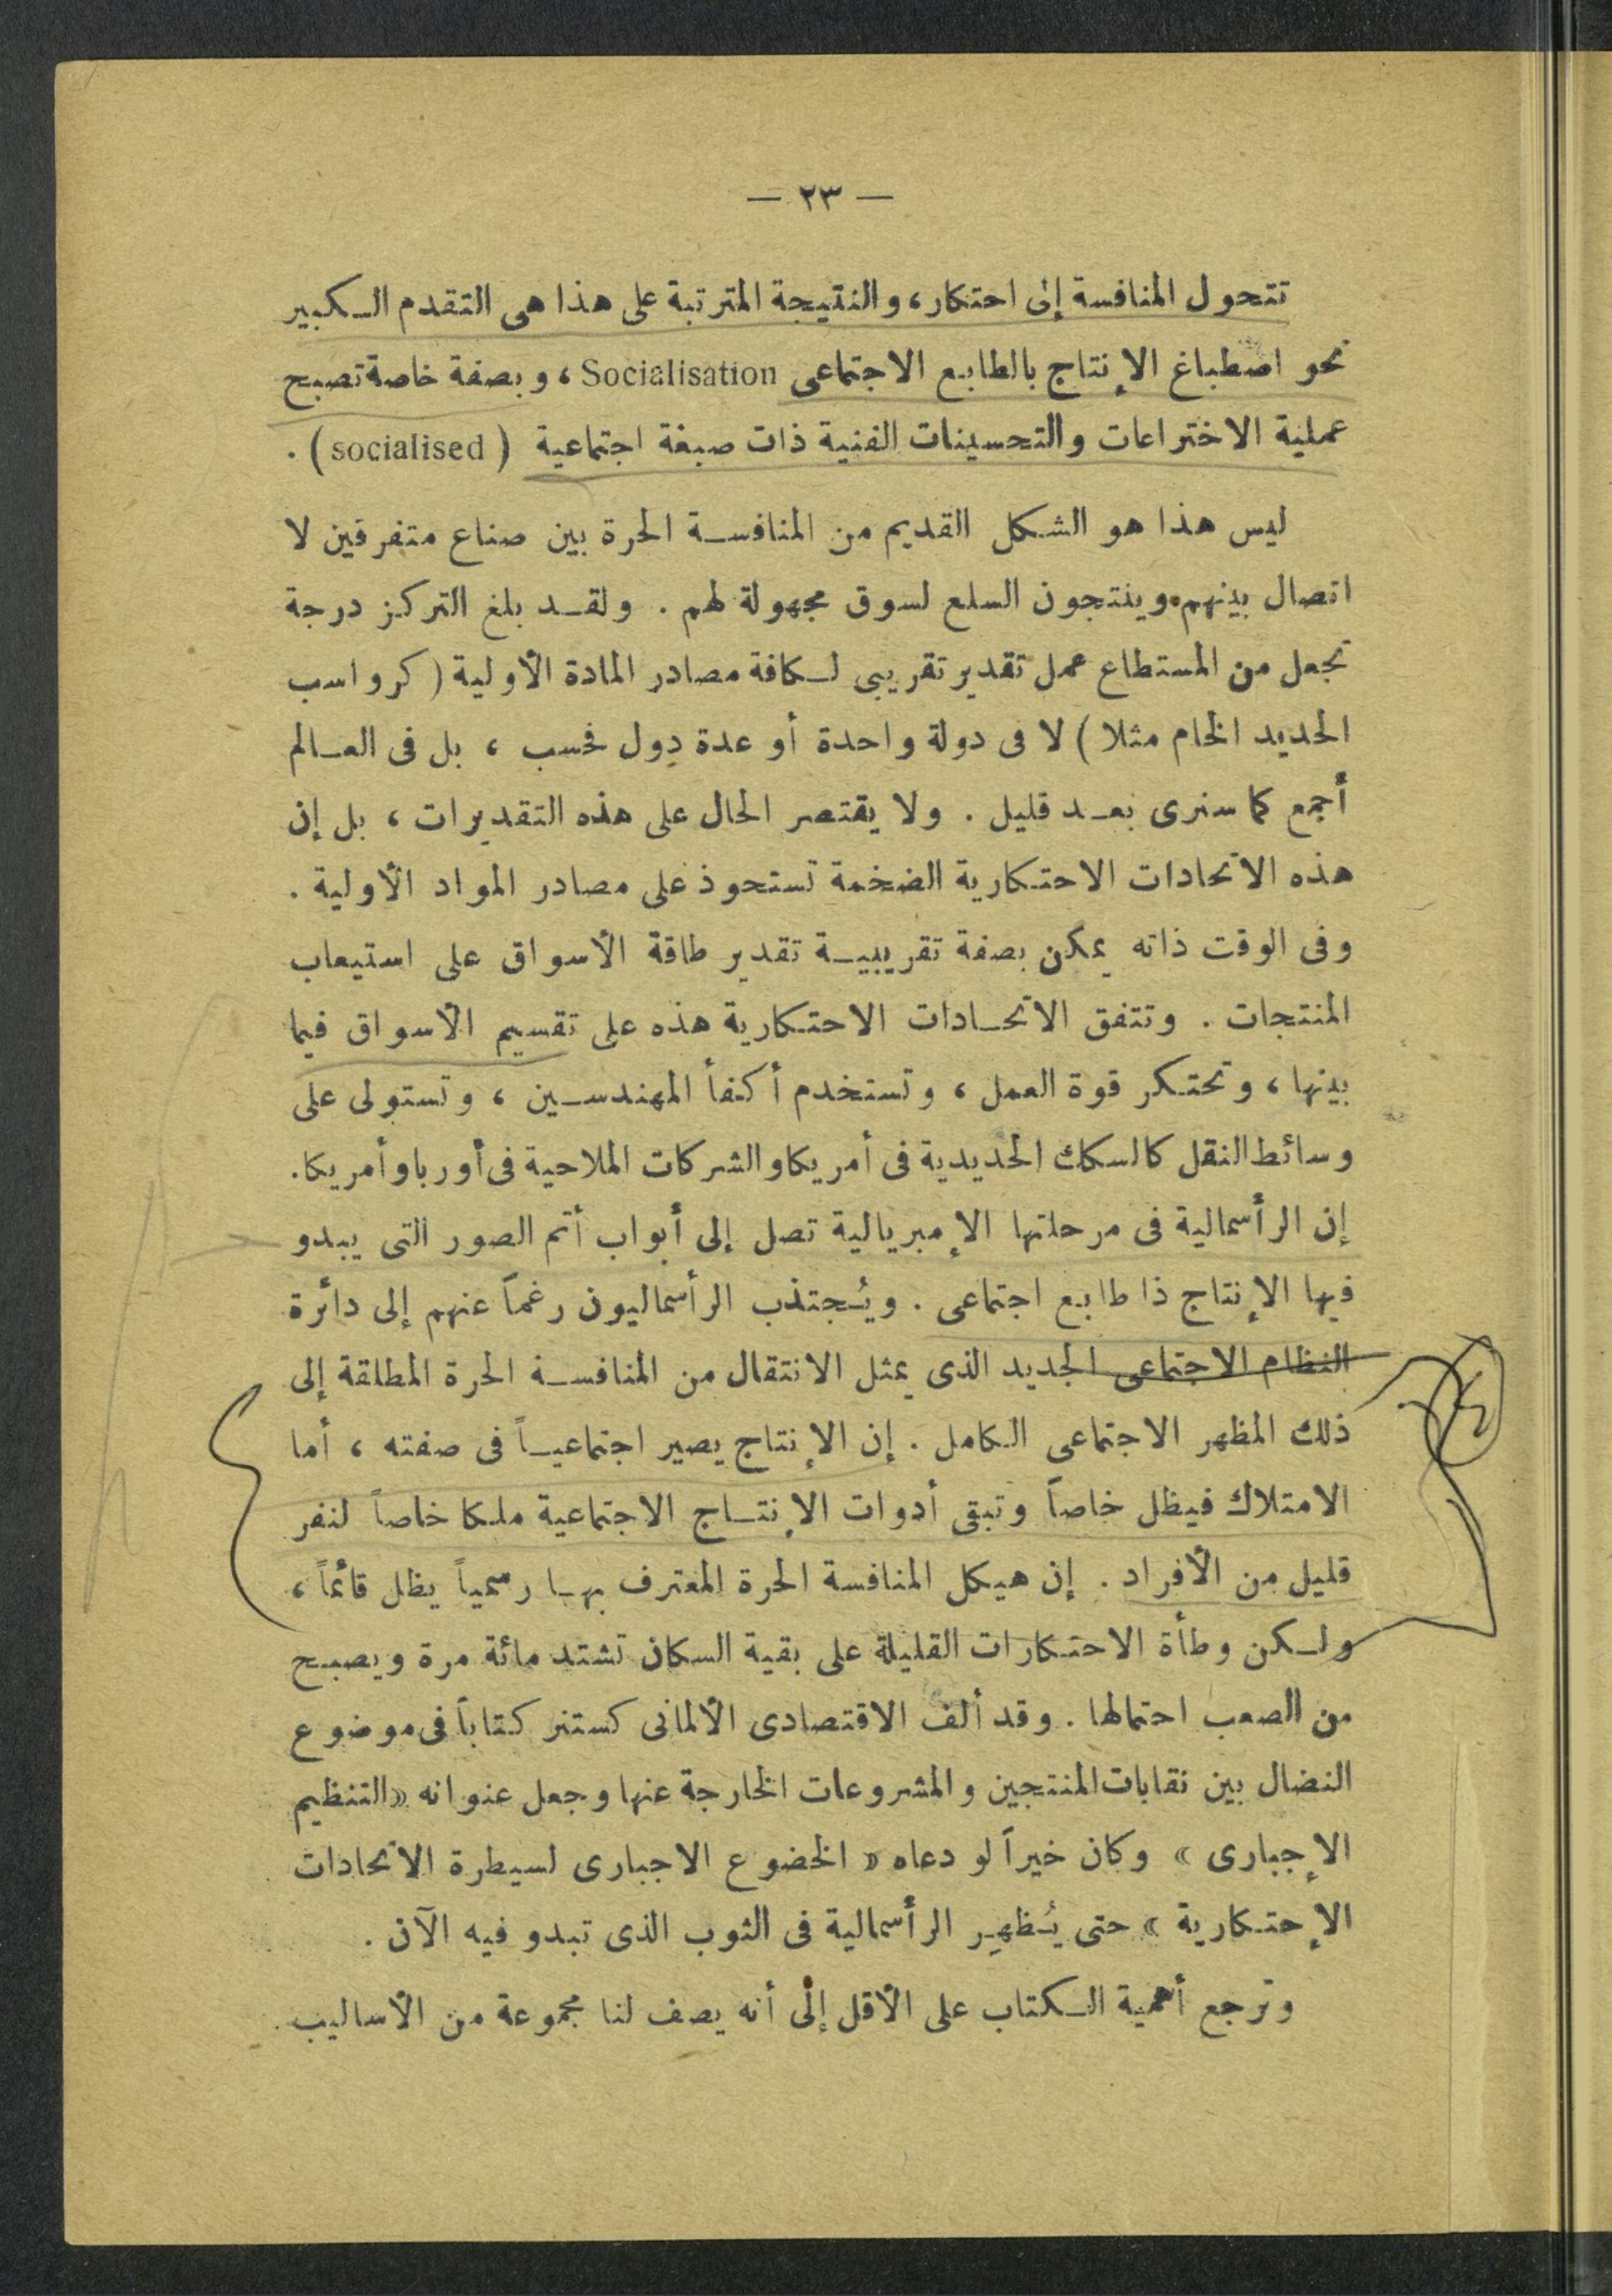 — ٢٣ —
تتحول المنافسة إلى احتكار، والنتيجة المترتبة على هذا هى التقدم الكبير
نحو اصطباغ الإنتاج بالطابع الاجتماعى Socialisation ، وبصفة خاصة تصبح
عملية الاختراعات والتحسينات الفنية ذات صبغة اجتماعية ( socialised ) .
ليس هذا هو الشكل القديم من المنافسة الحرة بين صناع متفرقين لا
اتصال بينهم وينتجون السلع لسوق مجهولة لهم . ولقد بلغ التركز درجة
تجعل من المستطاع عمل تقدير تقريبى لكافة مصادر المادة الأولية ( كرواسب
الحديد الخام مثلا ) لا فى دولة واحدة أو عدة دول فحسب ، بل فى العالم
أجمع كما سنرى بعد قليل . ولا يقتصر الحال على هذه التقديرات ، بل إن
هذه الاتحادات الاحتكارية الضخمة تستحوذ على مصادر المواد الأولية .
وفى الوقت ذاته يمكن بصفة تقريبية تقدير طاقة الأسواق على استيعاب
المنتجات . وتتفق الاتحادات الاحتكارية هذه على تقسيم الأسواق فيما
بينها ، وتحتكر قوة العمل ، وتستخدم أكفأ المهندسين ، وتستولى على
وسائط النقل كالسكك الحديدية فى أمريكا والشركات الملاحية فى أوربا وأمريكا.
إن الرأسمالية فى مرحلتها الإمبريالية تصل إلى أبواب أتم الصور التى يبدو
فيها الإنتاج ذا طابع اجتماعى . ويُجتذب الرأسماليون رغماً عنهم إلى دائرة
النظام الاجتماعى الجديد الذى يمثل الانتقال من المنافسة الحرة المطلقة إلى
ذلك المظهر الاجتماعى الكامل . إن الإنتاج يصير اجتماعياً فى صفته ، أما
الامتلاك فيظل خاصاً وتبقى أدوات الإنتاج الاجتماعية ملكا خاصاً لنفر
قليل من الأفراد . إن هيكل المنافسة الحرة المعترف بها رسمياً يظل قائماً ،
ولكن وطأة الاحتكارات القليلة على بقية السكان تشتد مائة مرة ويصبح
من الصعب احتمالها . وقد ألف الاقتصادى الألمانى كستنر كتاباً فى موضوع
النضال بين نقابات المنتجين والمشروعات الخارجة عنها وجعل عنوانه «التنظيم
الإجبارى » وكان خيراً لو دعاه « الخضوع الاجبارى لسيطرة الاتحادات
الإحتكارية » حتى يُظهِر الرأسمالية فى الثوب الذى تبدو فيه الآن .
وترجع أهمية الكتاب على الأقل إلى أنه يصف لنا مجموعة من الأساليب